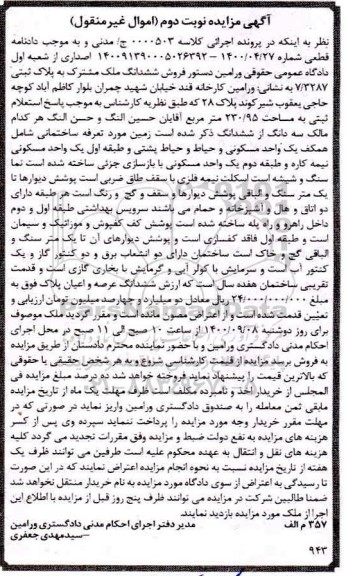 آگهی مزایده نوبت دوم (اموال غیر منقول)
نظر به اینکه در پرونده اجرائی کلاسه ۰۰۰۰۵۰۳ ج/ مدنی و به موجب دادنامه
قطعی شماره ۱۴۰۰/۰۴/۲۷ - ۱۴۰۰۹۱۳۹۰۰۰۵۰۲۶۳۹۲ اصداری از شعبه اول
دادگاه عمومی حقوقی ورامین دستور فروش ششدانگ ملک مشترک به پلاک ثبتی
۷/۳۲۸۷ به نشانی: ورامین کارخانه قند خیابان شهید چمران بلوار کاظم آباد کوچه
حاجی یعقوب شیرکوند پلاک ۲۸ که طبق نظریه کارشناس به موجب پاسخ استعلام
ثبتی به مساحت ۲۳۰/۹۵ متر مربع آقایان حسین النگ و حسن النگ هر کدام
مالک سه دانگ از ششدانگ ذکر شده است زمین مورد تعرفه ساختمانی شامل
همکف یک واحد مسکونی و حیاط و حیاط پشتی و طبقه اول یک واحد مسکونی
نیمه کاره و طبقه دوم یک واحد مسکونی با بازسازی جزئی ساخته شده است نما
سنگ و شیشه است اسکلت نیمه فلزی با سقف طاق ضربی است پوشش دیوارها تا
یک متر سنگ و الباقی پوشش دیوارها و سقف و گچ و رنگ است هر طبقه دارای
دو اتاق و هال و آشپزخانه و حمام می باشند سرویس بهداشتی طبقه اول و دوم
داخل راهرو و راه پله ساخته شده است پوشش کف کفپوش و موزائیک و سیمان
است و طبقه اول فاقد کفسازی است و پوشش دیوارهای آن تا یک متر سنگ و
الباقی گچ و خاک است ساختمان دارای دو انشعاب برق و دو کنتور گاز و یک
کنتور آب است و سرمایش با کولر آبی و گرمایش با بخاری گازی است و قدمت
تقریبی ساختمان هفده سال است که ارزش ششدانگ عرصه و اعیان پلاک فوق به
مبلغ ۲۴/۰۰۰/۰۰۰/۰۰۰ ریال معادل دو میلیارد و چهارصد میلیون تومان ارزیابی و
تعیین قیمت شده است و از اعتراض مصون مانده اند و مقرر گردید ملک موصوف
برای روز دوشنبه ۱۴۰۰/۰۹/۰۸ از ساعت ۱۰ صبح الی ۱۱ صبح در محل اجرای
احکام مدنی دادگستری ورامین و با حضور نماینده محترم دادستان از طریق مزایده
به فروش برسد مزایده از قیمت کارشناسی شروع و به هر شخص حقیقی یا حقوقی
که بالاترین قیمت را پیشنهاد نماید فروخته خواهد شد ده درصد مبلغ مزایده فی
المجلس از خریدار اخذ و نامبرده مکلف است ظرف مهلت یک ماه از تاریخ مزایده
مابقی ثمن معامله را به صندوق دادگستری ورامین واریز نماید در صورتی که در
مهلت مقرر خریدار وجه مورد مزایده را پرداخت ننماید سپرده وی پس از کسر
هزینه های مزایده به نفع دولت ضبط و مزایده وفق مقررات تجدید می گردد کلیه
هزینه های نقل و انتقال به عهده محکوم علیه است طرفین می توانند ظرف یک
هفته از تاریخ مزایده نسبت به نحوه انجام مزایده اعتراض نمایند که در این صورت
تا رسیدگی به اعتراض از سوی دادگاه مورد مزایده به نام خریدار منتقل نخواهد شد
ضمنا طالبین شرکت در مزایده می توانند ظرف پنج روز قبل از مزایده با اطلاع این
اجرا از ملک مورد مزایده بازدید نمایند.
۳۵۷ م الف مدیر دفتر اجرای احکام مدنی دادگستری ورامین
-سیدمهدی جعفری
۹۴۳